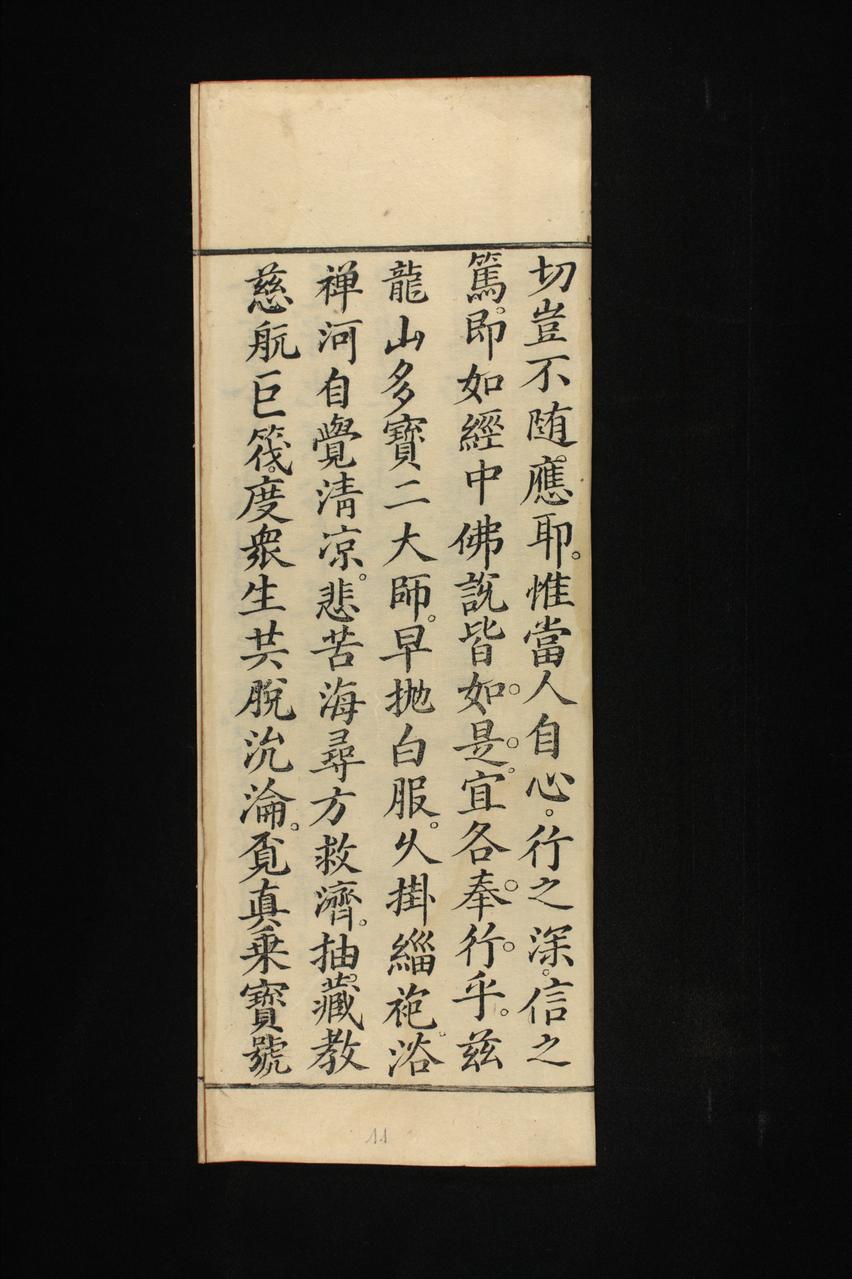 切豈不随應耶。惟當人自心。行之深。信之
篤。即如經中佛說皆如。是。宜各奉。行。乎。兹
龍山多寶二大師。早抛白服。乆掛緇袍。浴
禅河自覺清凉。悲苦海尋方救濟。抽藏教
慈航巨筏。度衆生共脫沉淪。覔真乗寳號
11